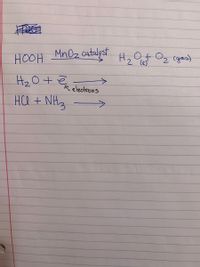 HOOH MnO2 catalyst → H2O(l) + O2 (gas)
H2O + e̅ →
↖ electrons
HCl + NH3 →